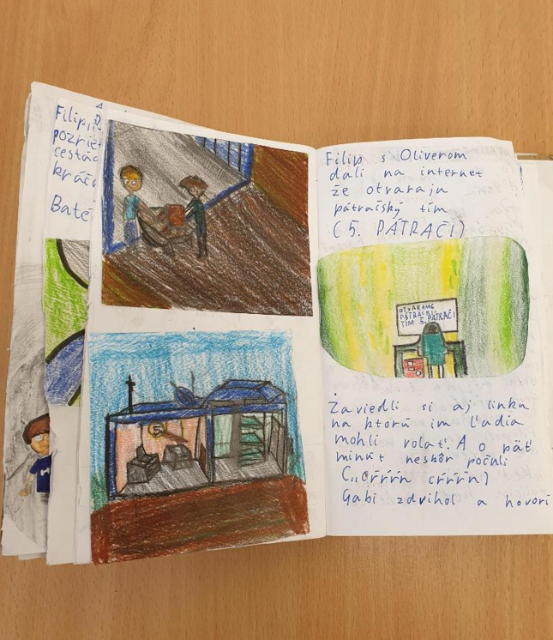 Filip
pozrie
cesta
kráča
Bate
Filip s Oliverom
dali na internet
že otvaraju
pátraiský tím
(5. PÁTRAČI)
OTVÁRAME
PÁTRAČSKÝ
TÍM 5. PÁTRAČI
5
Zaviedli si aj linku
na ktorú im ľudia
mohli volať. A o päť
minút neskôr počuli
(„crŕŕŕn crŕŕŕn)
Gabi zdvihol a hovorí